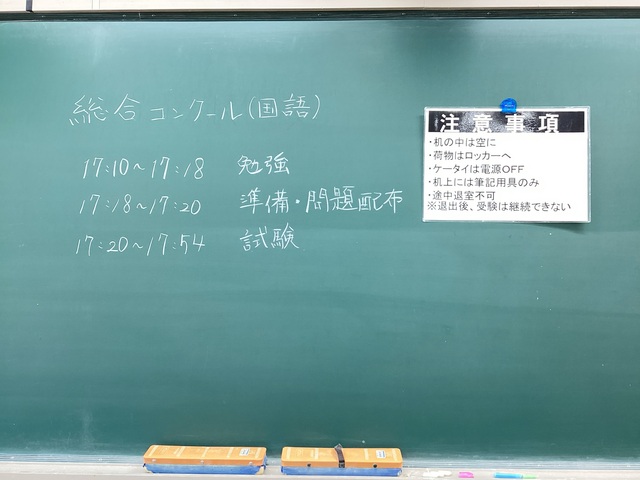 総合コンクール(国語)
17:10～17:18 勉強
17:18～17:20 準備・問題配布
17:20～17:54 試験
注意事項
・机の中は空に
・荷物はロッカーへ
・ケータイは電源OFF
・机上には筆記用具のみ
・途中退室不可
※退出後、受験は継続できない